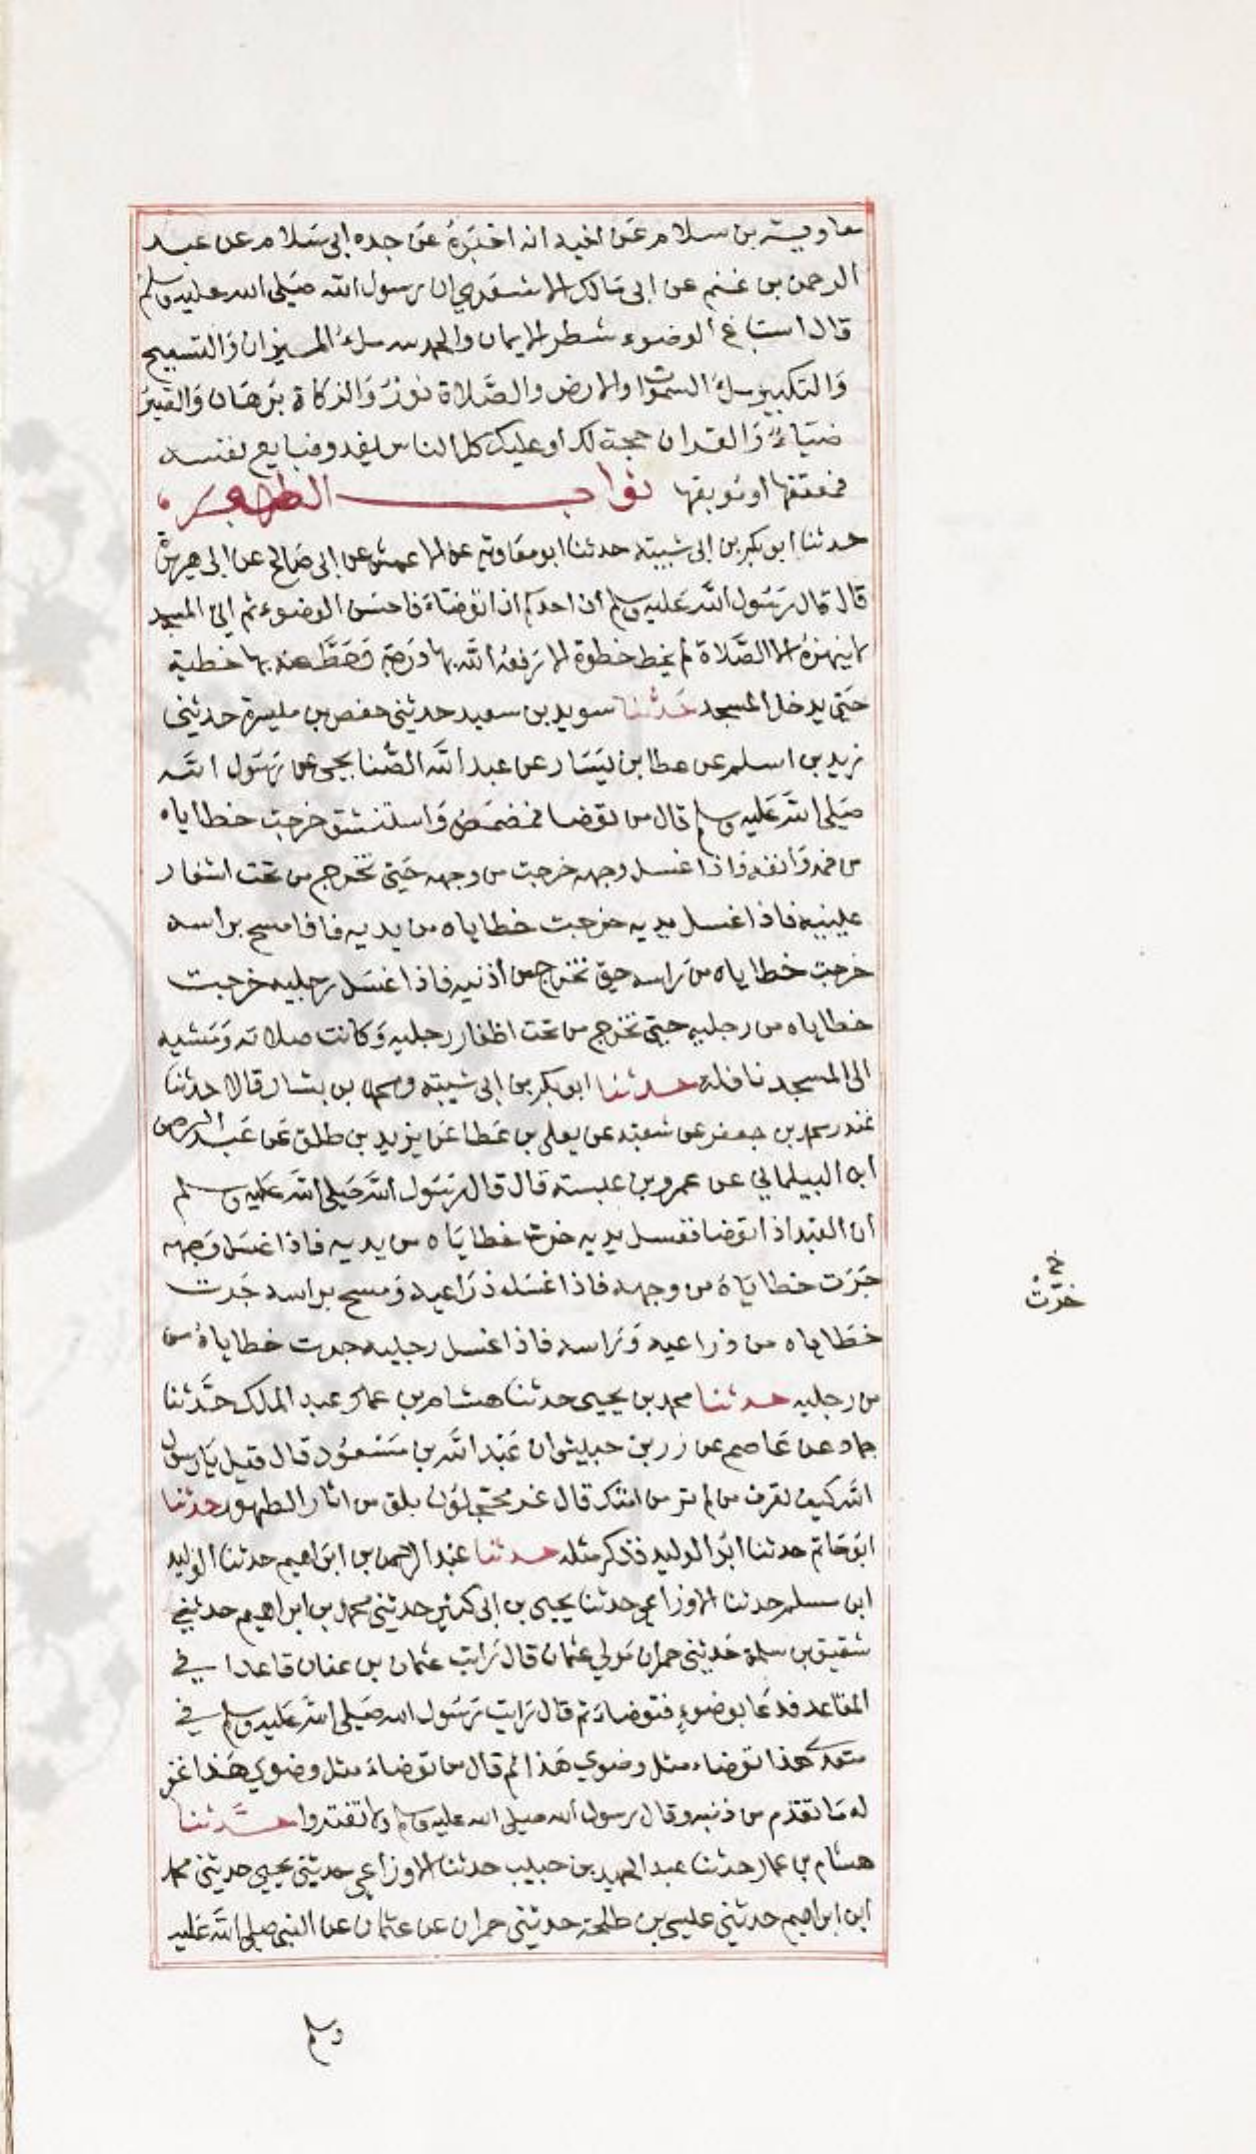 معاوية بن سلام عن اخيه انه اخبره عن جده ابي سلام عن عبد
الرحمن بن غنم عن ابي مالك الاشعري ان رسول الله صلى الله عليه وسلم
قال اسباغ الوضوء شطر الايمان والحمد لله ملء الميزان والتسبيح
والتكبير ملء السموات والارض والصلاة نور والزكاة برهان والصبر
ضياء والقران حجة لك او عليك كل الناس يغدو فبايع نفسه
فمعتقها او موبقها ثواب الطهور
حدثنا ابو بكر بن ابي شيبة حدثنا ابو معاوية عن الاعمش عن ابي صالح عن ابي هريرة
قال قال رسول الله عليه وسلم ان احدكم اذا توضاء فاحسن الوضوء ثم اتى المسجد
لا ينهزه الا الصلاة لم يخط خطوة الا رفعه الله بها درجة وحط عنه بها خطية
حتى يدخل المسجد حدثنا سويد بن سعيد حدثني حفص بن ميسرة حدثني
زيد بن اسلم عن عطا بن يسار عن عبد الله الصنابحي عن رسول الله
صلى الله عليه وسلم قال من توضا فمضمض واستنشق خرجت خطاياه
من فمه وانفه فاذا غسل وجهه خرجت من وجهه حتى تخرج من تحت اشفار
عينيه فاذا غسل يديه خرجت خطاياه من يديه فاذا مسح براسه
خرجت خطاياه من راسه حتى تخرج من أذنيه فاذا غسل رجليه خرجت
خطاياه من رجليه حتى تخرج من تحت اظفار رجليه وكانت صلاته ومشيه
الى المسجد نافلة حدثنا ابو بكر بن ابي شيبة ومحمد بن بشار قالا حدثنا
غندر محمد بن جعفر عن شعبه عن يعلى بن عطا عن يزيد بن طلق عن عبد الرحمن
ابن البيلماني عن عمرو بن عبسة قال قال رسول الله صلى الله عليه وسلم
ان العبد اذا توضا فغسل يديه خرت خطاياه من يديه فاذا غسل وجهه
جرت خطاياه من وجهه فاذا غسله ذراعيه ومسح براسه جرت
خطاياه من ذراعيه وراسه فاذا غسل رجليه جرت خطاياه من
من رجليه حدثنا محمد بن يحيى حدثنا هشام بن عبد الملك حدثنا
حماد عن عاصم عن زر بن حبيش ان عبد الله بن مسعود قال قيل يا رسول
الله كيف تعرف من لم تر من امتك قال غر محجلون بلق من اثار الطهور حدثنا
ابو حاتم حدثنا ابو الوليد فذكر مثله حدثنا عبد الرحمن بن ابراهيم حدثنا الوليد
ابن مسلم حدثنا الاوزاعي حدثنا يحيى بن ابي كثير حدثني محمد بن ابراهيم حدثني
شقيق بن سلمة حدثني حمران مولى عثمان قال رايت عثمان بن عفان قاعدا في
المقاعد فدعا بوضوء فتوضاء ثم قال رايت رسول الله صلى الله عليه وسلم في
مقعدي هذا توضاء مثل وضوي هذا ثم قال من توضاء مثل وضوي هذا غفر
له ما تقدم من ذنبه وقال رسول الله صلى الله عليه وسلم ولا تغتروا حدثنا
هشام بن عمار حدثنا عبد الحميد بن حبيب حدثنا الاوزاعي حدثني يحيى حدثني محمد
ابن ابراهيم حدثني عيسى بن طلحة حدثني حمران عن عثمان عن النبي صلى الله عليه
وسلم
خ
خرت